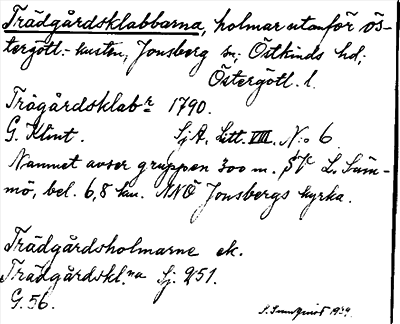 Trädgårdsklabbarna, holmar utanför Ös-
tergötl.-kusten, Jonsberg sn; Östkinds hd;
Östergötl. l.
Trägårdsklabr 1790.
G. Klint. SjA. Litt. VIII. N:o 6
Namnet avser gruppen 300 m. SV L. Läm-
mö, bel. 6,8 km. NNÖ Jonsbergs kyrka.
Trädgårdsholmarne ek.
Trädgårdskl.na Sj. 251.
G. 56.